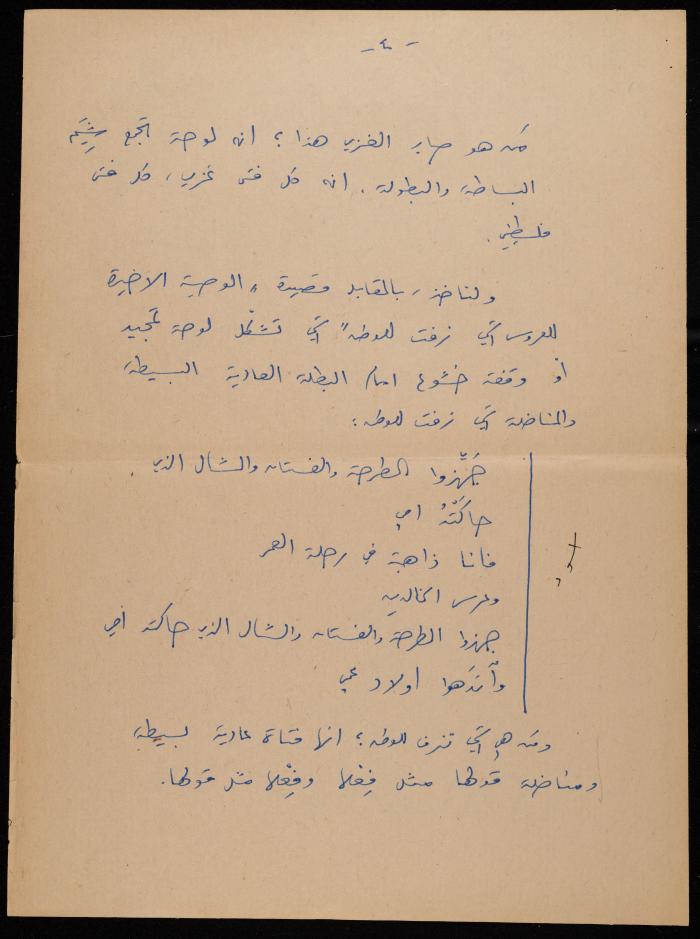 - ٤ -
من هو صابر الغزي هذا؟ انه لوحة تجمع شِيَم
البساطة والبطولة. انه كل فتى غزي، كل فتى
فلسطيني.
ولنأخذ، بالمقابل قصيدة "الوصية الاخيرة
للعروس التي زفت للوطن" التي تشكّل لوحة تمجيد
أو وقفة خشوع امام البطلة العادية البسيطة
والمناضلة التي زفت للوطن:
جَهّزوا الطرحة والفستان والشال الذي
حاكَتْهُ امي
فانا ذاهبة في رحلة العمر
وعرس الخالدين
جهزوا الطرحة والفستان والشال الذي حاكته امي
وأنْدَهوا اولاد عمي
ومن هي التي تزف للوطن؟ انها فتاة عادية بسيطة
ومناضلة قولها مثل فِعْلها وفِعْلها مثل قولها.